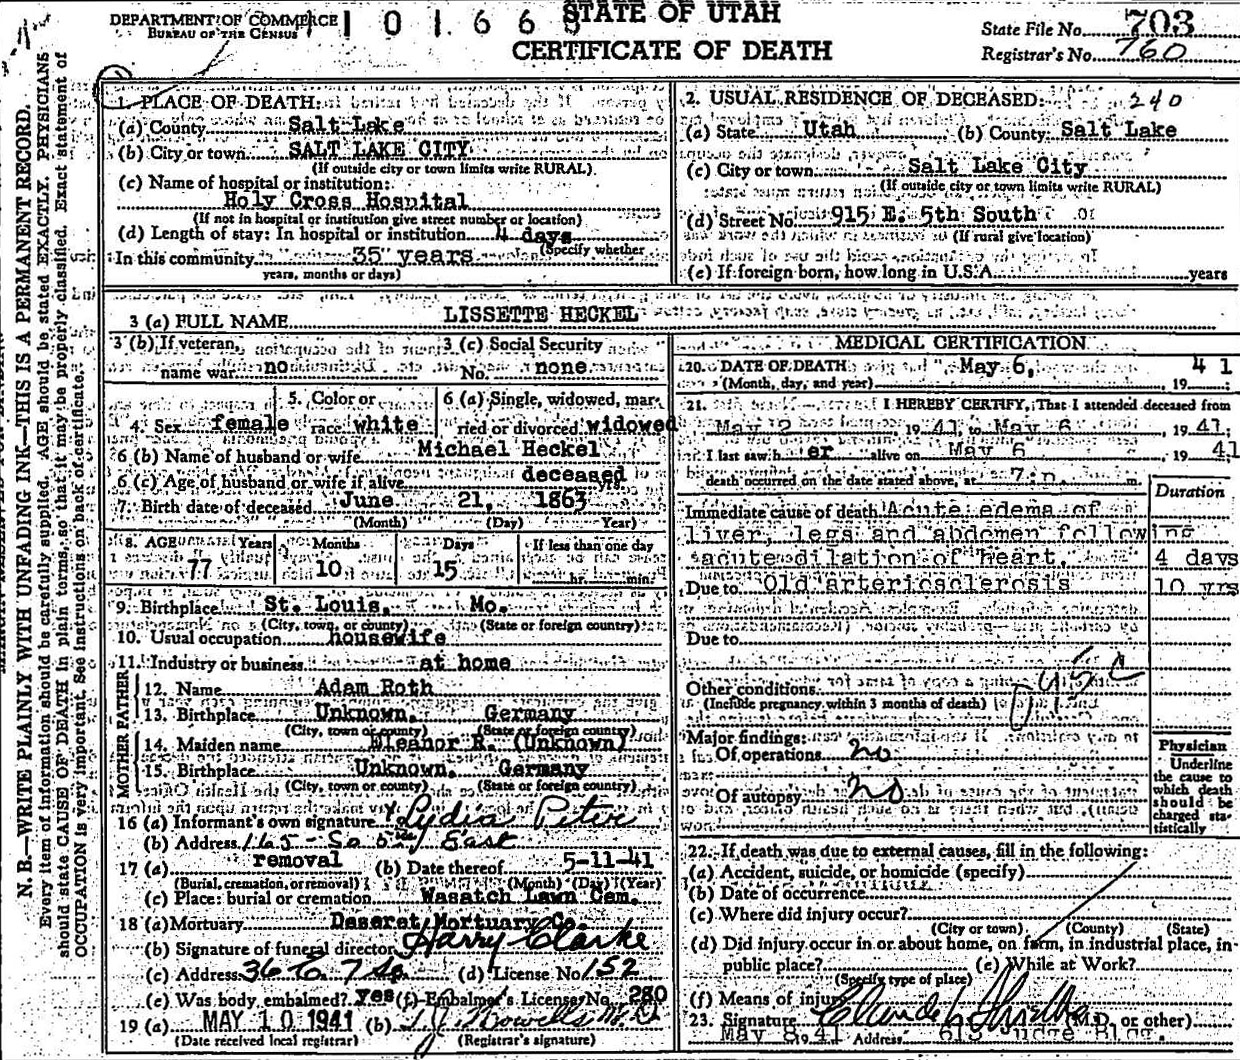 DEPARTMENT OF COMMERCE
BUREAU OF THE CENSUS
STATE OF UTAH
CERTIFICATE OF DEATH
State File No. 703
Registrar's No. 760
N. B.—WRITE PLAINLY WITH UNFADING INK—THIS IS A PERMANENT RECORD.
Every item of information should be carefully supplied. AGE should be stated EXACTLY. PHYSICIANS
should state CAUSE OF DEATH in plain terms, so that it may be properly classified. Exact statement of
OCCUPATION is very important. See instructions on back of certificate.
1. PLACE OF DEATH:
(a) County Salt Lake
(b) City or town SALT LAKE CITY
(If outside city or town limits write RURAL)
(c) Name of hospital or institution:
Holy Cross Hospital
(If not in hospital or institution give street number or location)
(d) Length of stay: In hospital or institution 4 days
(Specify whether
In this community 35 years
years, months or days)
2. USUAL RESIDENCE OF DECEASED: 240
(a) State Utah (b) County Salt Lake
(c) City or town Salt Lake City
(If outside city or town limits write RURAL)
(d) Street No. 915 E. 5th South
(If rural give location)
(e) If foreign born, how long in U.S.A. years
3 (a) FULL NAME LISSETTE HECKEL
3 (b) If veteran, name war no
3 (c) Social Security No. none
4. Sex female
5. Color or race white
6 (a) Single, widowed, married or divorced widowed
6 (b) Name of husband or wife Michael Heckel
6 (c) Age of husband or wife if alive deceased yrs
7. Birth date of deceased June 21, 1863
(Month) (Day) Year)
8. AGE Years Months Days If less than one day
77 10 15 hr. min.
9. Birthplace St. Louis, Mo.
(City, town, or county) (State or foreign country)
10. Usual occupation housewife
11. Industry or business at home
FATHER
12. Name Adam Roth
13. Birthplace Unknown, Germany
(City, town or county) (State or foreign country)
MOTHER
14. Maiden name Eleanor R. (Unknown)
15. Birthplace Unknown, Germany
(City, town or county) (State or foreign country)
16 (a) Informant's own signature Lydia Peter
(b) Address 165 - So 5th East
17 (a) removal (b) Date thereof 5-11-41
(Burial, cremation, or removal) (Month) (Day) (Year)
(c) Place: burial or cremation Wasatch Lawn Cem.
18 (a) Mortuary Deseret Mortuary Co.
(b) Signature of funeral director Harry Clarke
(c) Address 36 E 7 So (d) License No. 152
(e) Was body embalmed? yes (f) Embalmer's License No. 280
19 (a) MAY 10 1941 (b)
(Date received local registrar) (Registrar's signature)
MEDICAL CERTIFICATION
20. DATE OF DEATH May 6, 1941
(Month, day, and year)
21. I HEREBY CERTIFY, That I attended deceased from
May 2 1941 to May 6, 1941;
I last saw her alive on May 6, 1941
death occurred on the date stated above, at 7:p. m.
Duration
Immediate cause of death Acute edema of
liver, legs and abdomen following
acute dilation of heart. 4 days
Due to Old arteriosclerosis 10 yrs
Due to
Other conditions
(Include pregnancy within 3 months of death)
Major findings:
Of operations no
Of autopsy no
Physician
Underline the cause to which death should be charged statistically
22. If death was due to external causes, fill in the following:
(a) Accident, suicide, or homicide (specify)
(b) Date of occurrence
(c) Where did injury occur?
(City or town) (County) (State)
(d) Did injury occur in or about home, on farm, in industrial place, in public place? (e) While at Work?
(Specify type of place)
(f) Means of injury
23. Signature (M.D. or other)
May 8, 1941 Address 613 Judge Bldg.